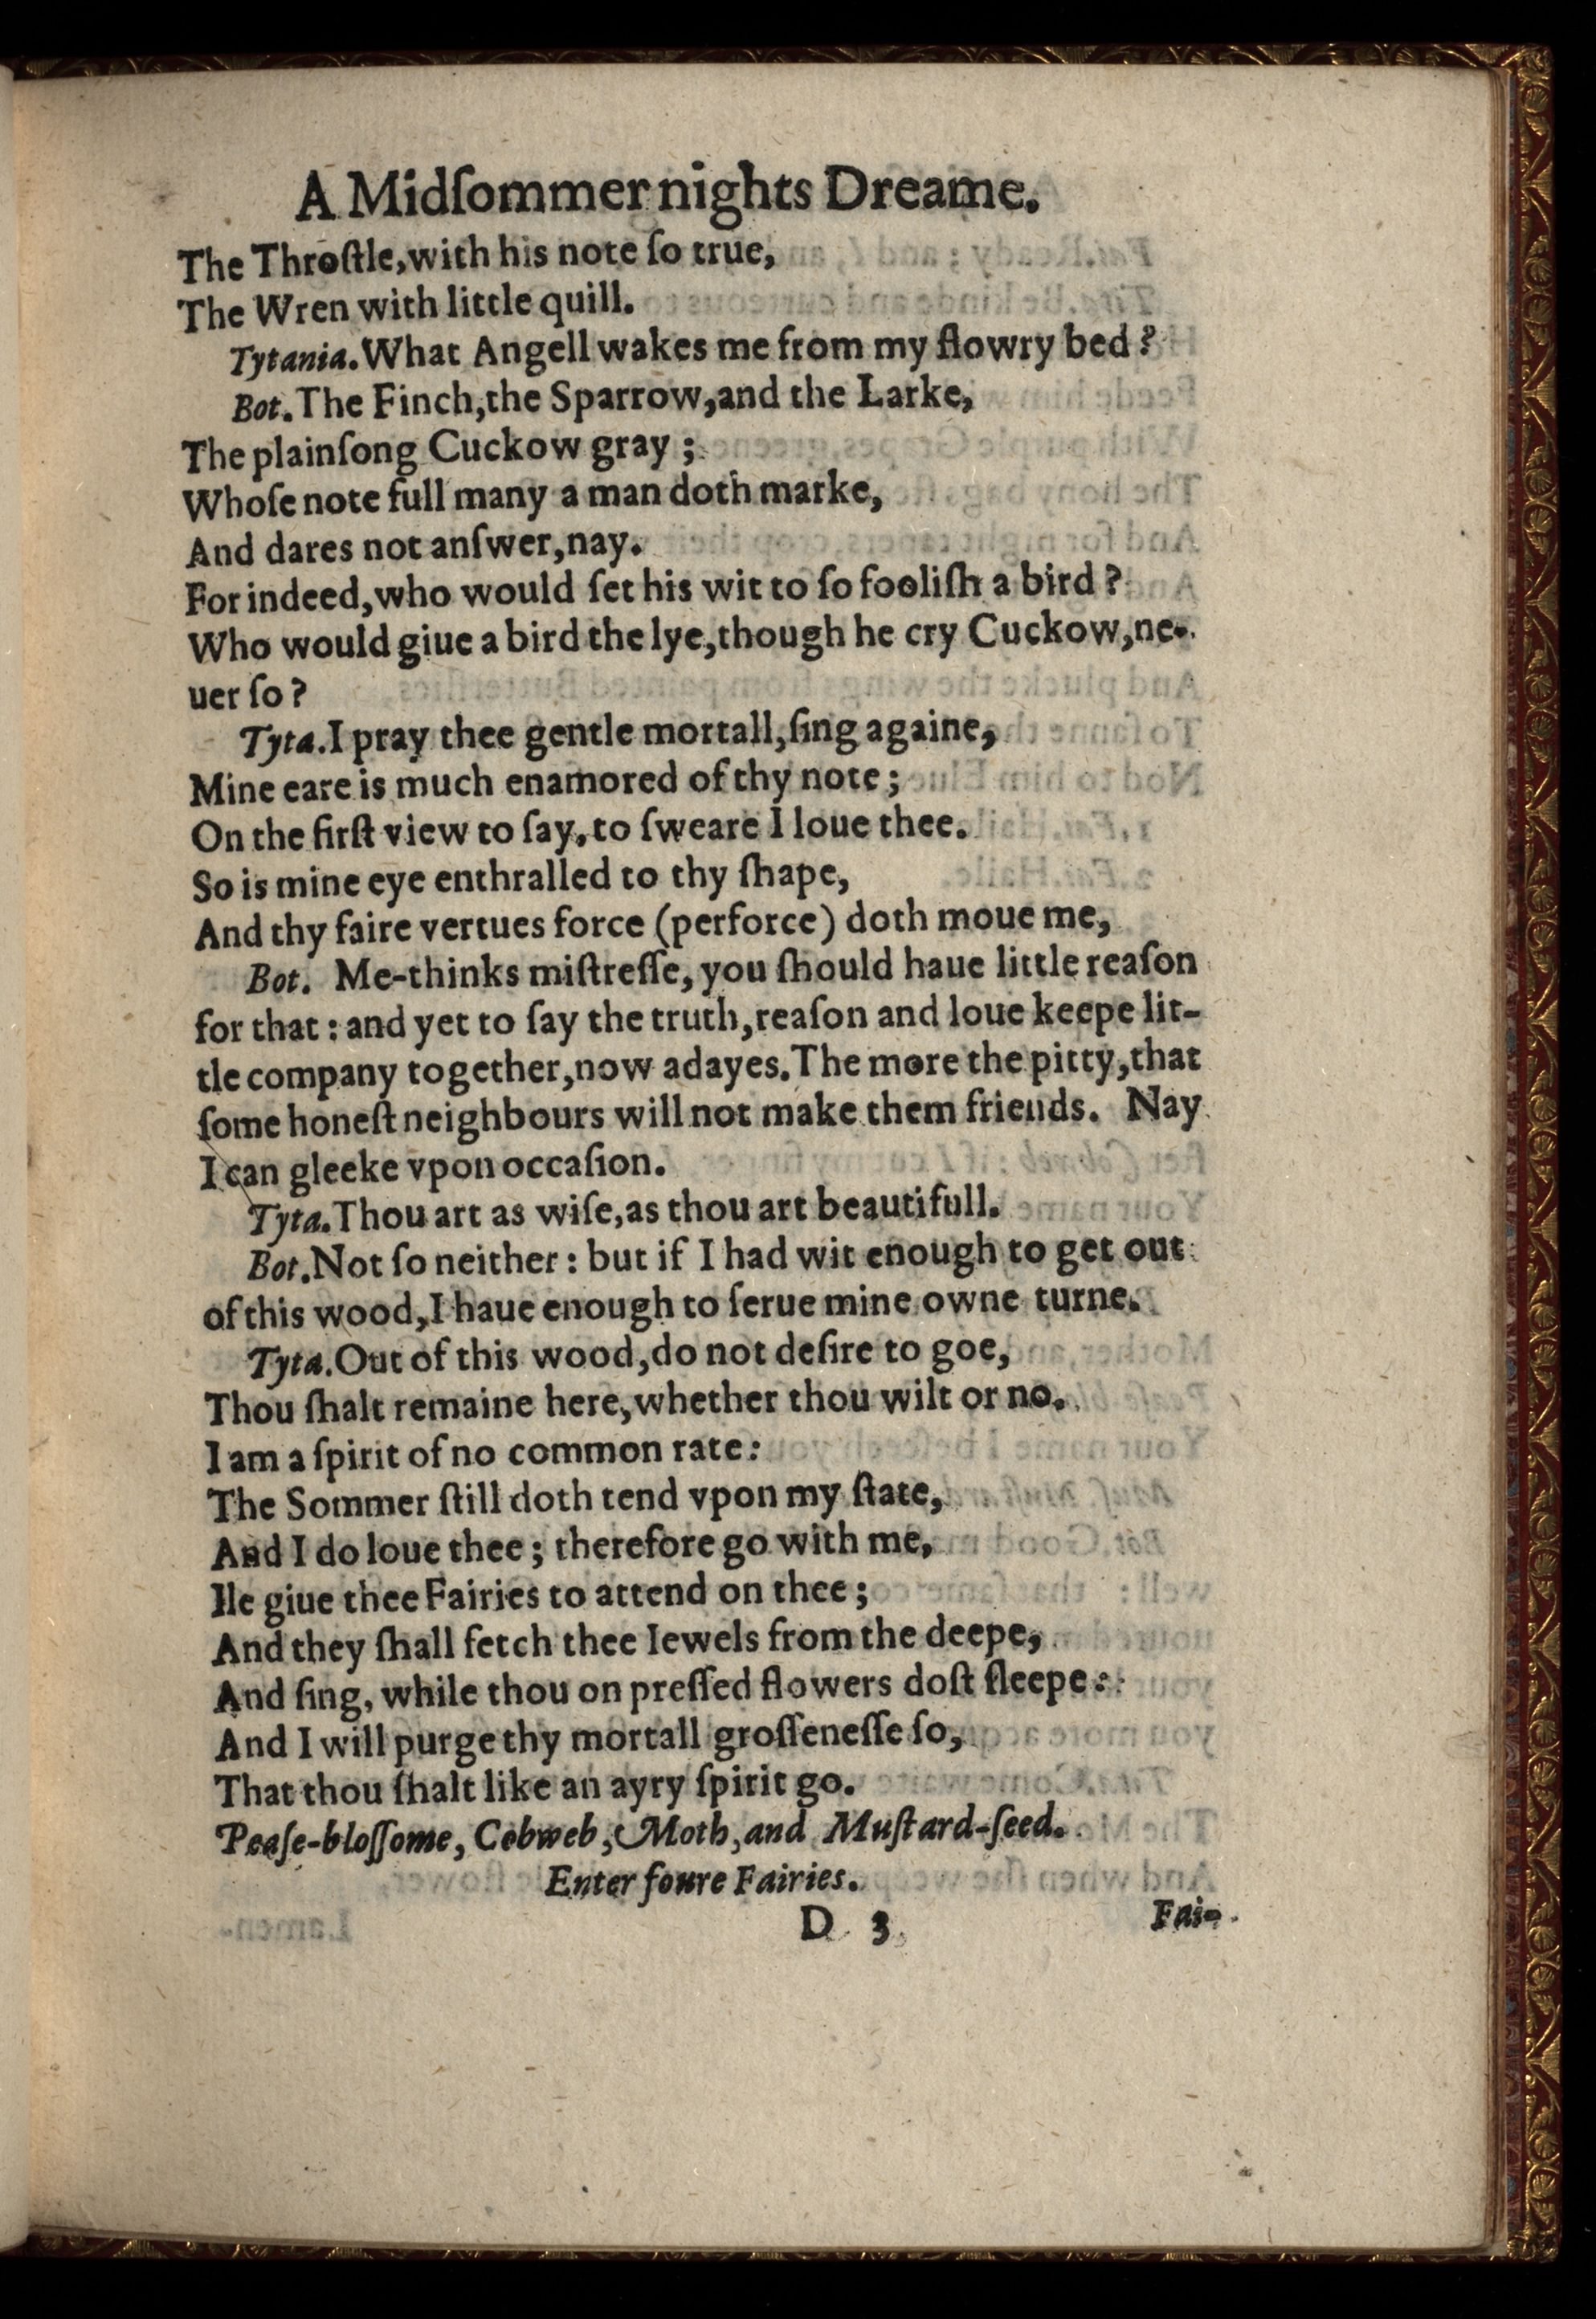 A Midſommer nights Dreame.
The Throſtle, with his note ſo true,
The Wren with little quill.
Tytania. What Angell wakes me from my flowry bed?
Bot. The Finch, the Sparrow, and the Larke,
The plainſong Cuckow gray;
Whoſe note full many a man doth marke,
And dares not anſwer, nay.
For indeed, who would ſet his wit to ſo fooliſh a bird?
Who would giue a bird the lye, though he cry Cuckow, ne-
uer ſo?
Tyta. I pray thee gentle mortall, ſing againe,
Mine eare is much enamored of thy note;
On the firſt view to ſay, to ſweare I loue thee.
So is mine eye enthralled to thy ſhape,
And thy faire vertues force (perforce) doth moue me,
Bot. Me-thinks miſtreſſe, you ſhould haue little reaſon
for that: and yet to ſay the truth, reaſon and loue keepe lit-
tle company together, now adayes. The more the pitty, that
ſome honeſt neighbours will not make them friends. Nay
I can gleeke vpon occaſion.
Tyta. Thou art as wiſe, as thou art beautifull.
Bot. Not ſo neither: but if I had wit enough to get out
of this wood, I haue enough to ſerue mine owne turne.
Tyta. Out of this wood, do not deſire to goe,
Thou ſhalt remaine here, whether thou wilt or no.
I am a ſpirit of no common rate:
The Sommer ſtill doth tend vpon my ſtate,
And I do loue thee; therefore go with me,
Ile giue thee Fairies to attend on thee;
And they ſhall fetch thee Iewels from the deepe,
And ſing, while thou on preſſed flowers doſt ſleepe:
And I will purge thy mortall groſſeneſſe ſo,
That thou ſhalt like an ayry ſpirit go.
Peaſe-bloſſome, Cobweb, Moth, and Muſtard-ſeed.
Enter foure Fairies.
D 3 Fai-